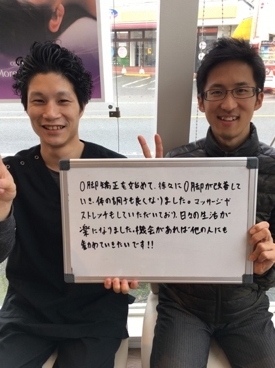 O脚矯正を始めて、徐々にO脚が改善して
いき、体の調子も良くなりました。マッサージや
ストレッチもしていただいており、日々の生活が
楽になりました。機会があれば他の人にも
勧めていきたいです!!